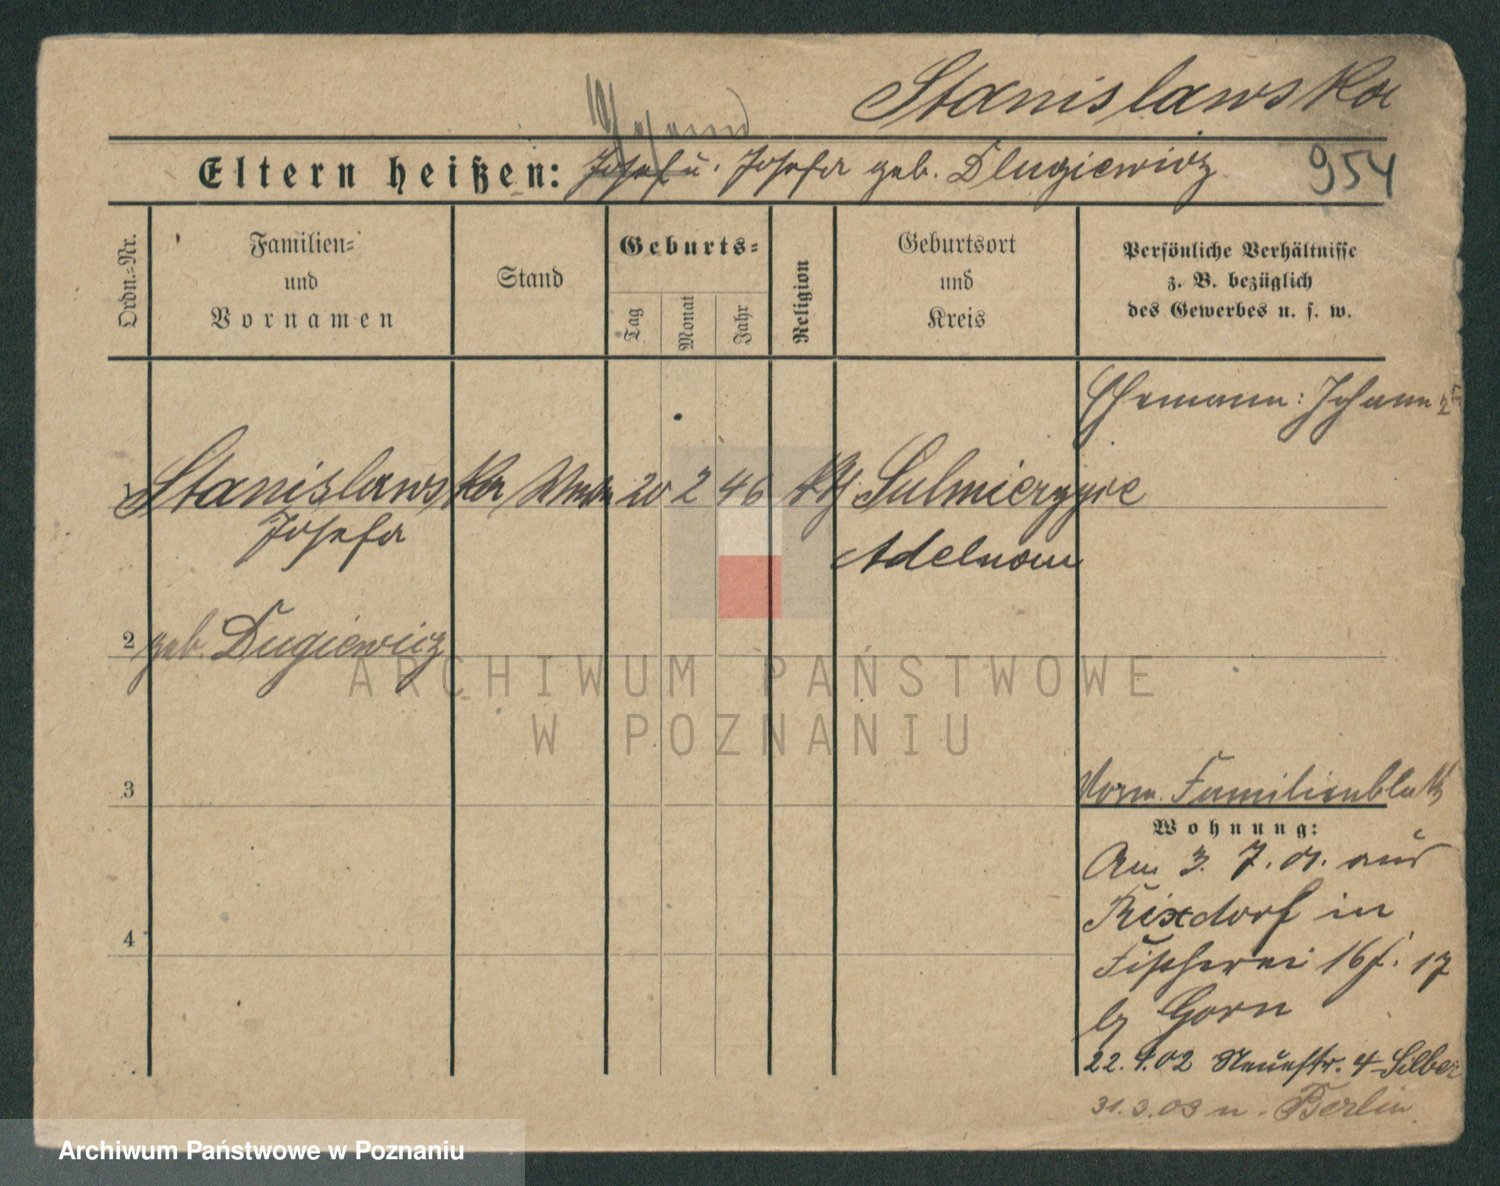 Stanislawska
Johann
Eltern heißen: Josef u. Josefa geb. Dlugiewicz
954
Ordn.-Nr.
Familien=
und
Vornamen
Stand
Geburts=
Tag
Monat
Jahr
Religion
Geburtsort
und
Kreis
Persönliche Verhältnisse
z. B. bezüglich
des Gewerbes u. s. w.
Ehemann: Johann
1 Stanislawska 20 2 46 Sulmierzyce
Josefa Adelnau
2 geb. Dugiewicz
3
Vorm. Familienblatt
Wohnung:
Am 3. 7. 01. aus
Rixdorf in
4
Fischerei 16 f. 17
by Gorn
22. 4. 02 Neuestr. 4 Silber
31. 3. 03 n. Berlin
ARCHIWUM PAŃSTWOWE
W POZNANIU
Archiwum Państwowe w Poznaniu